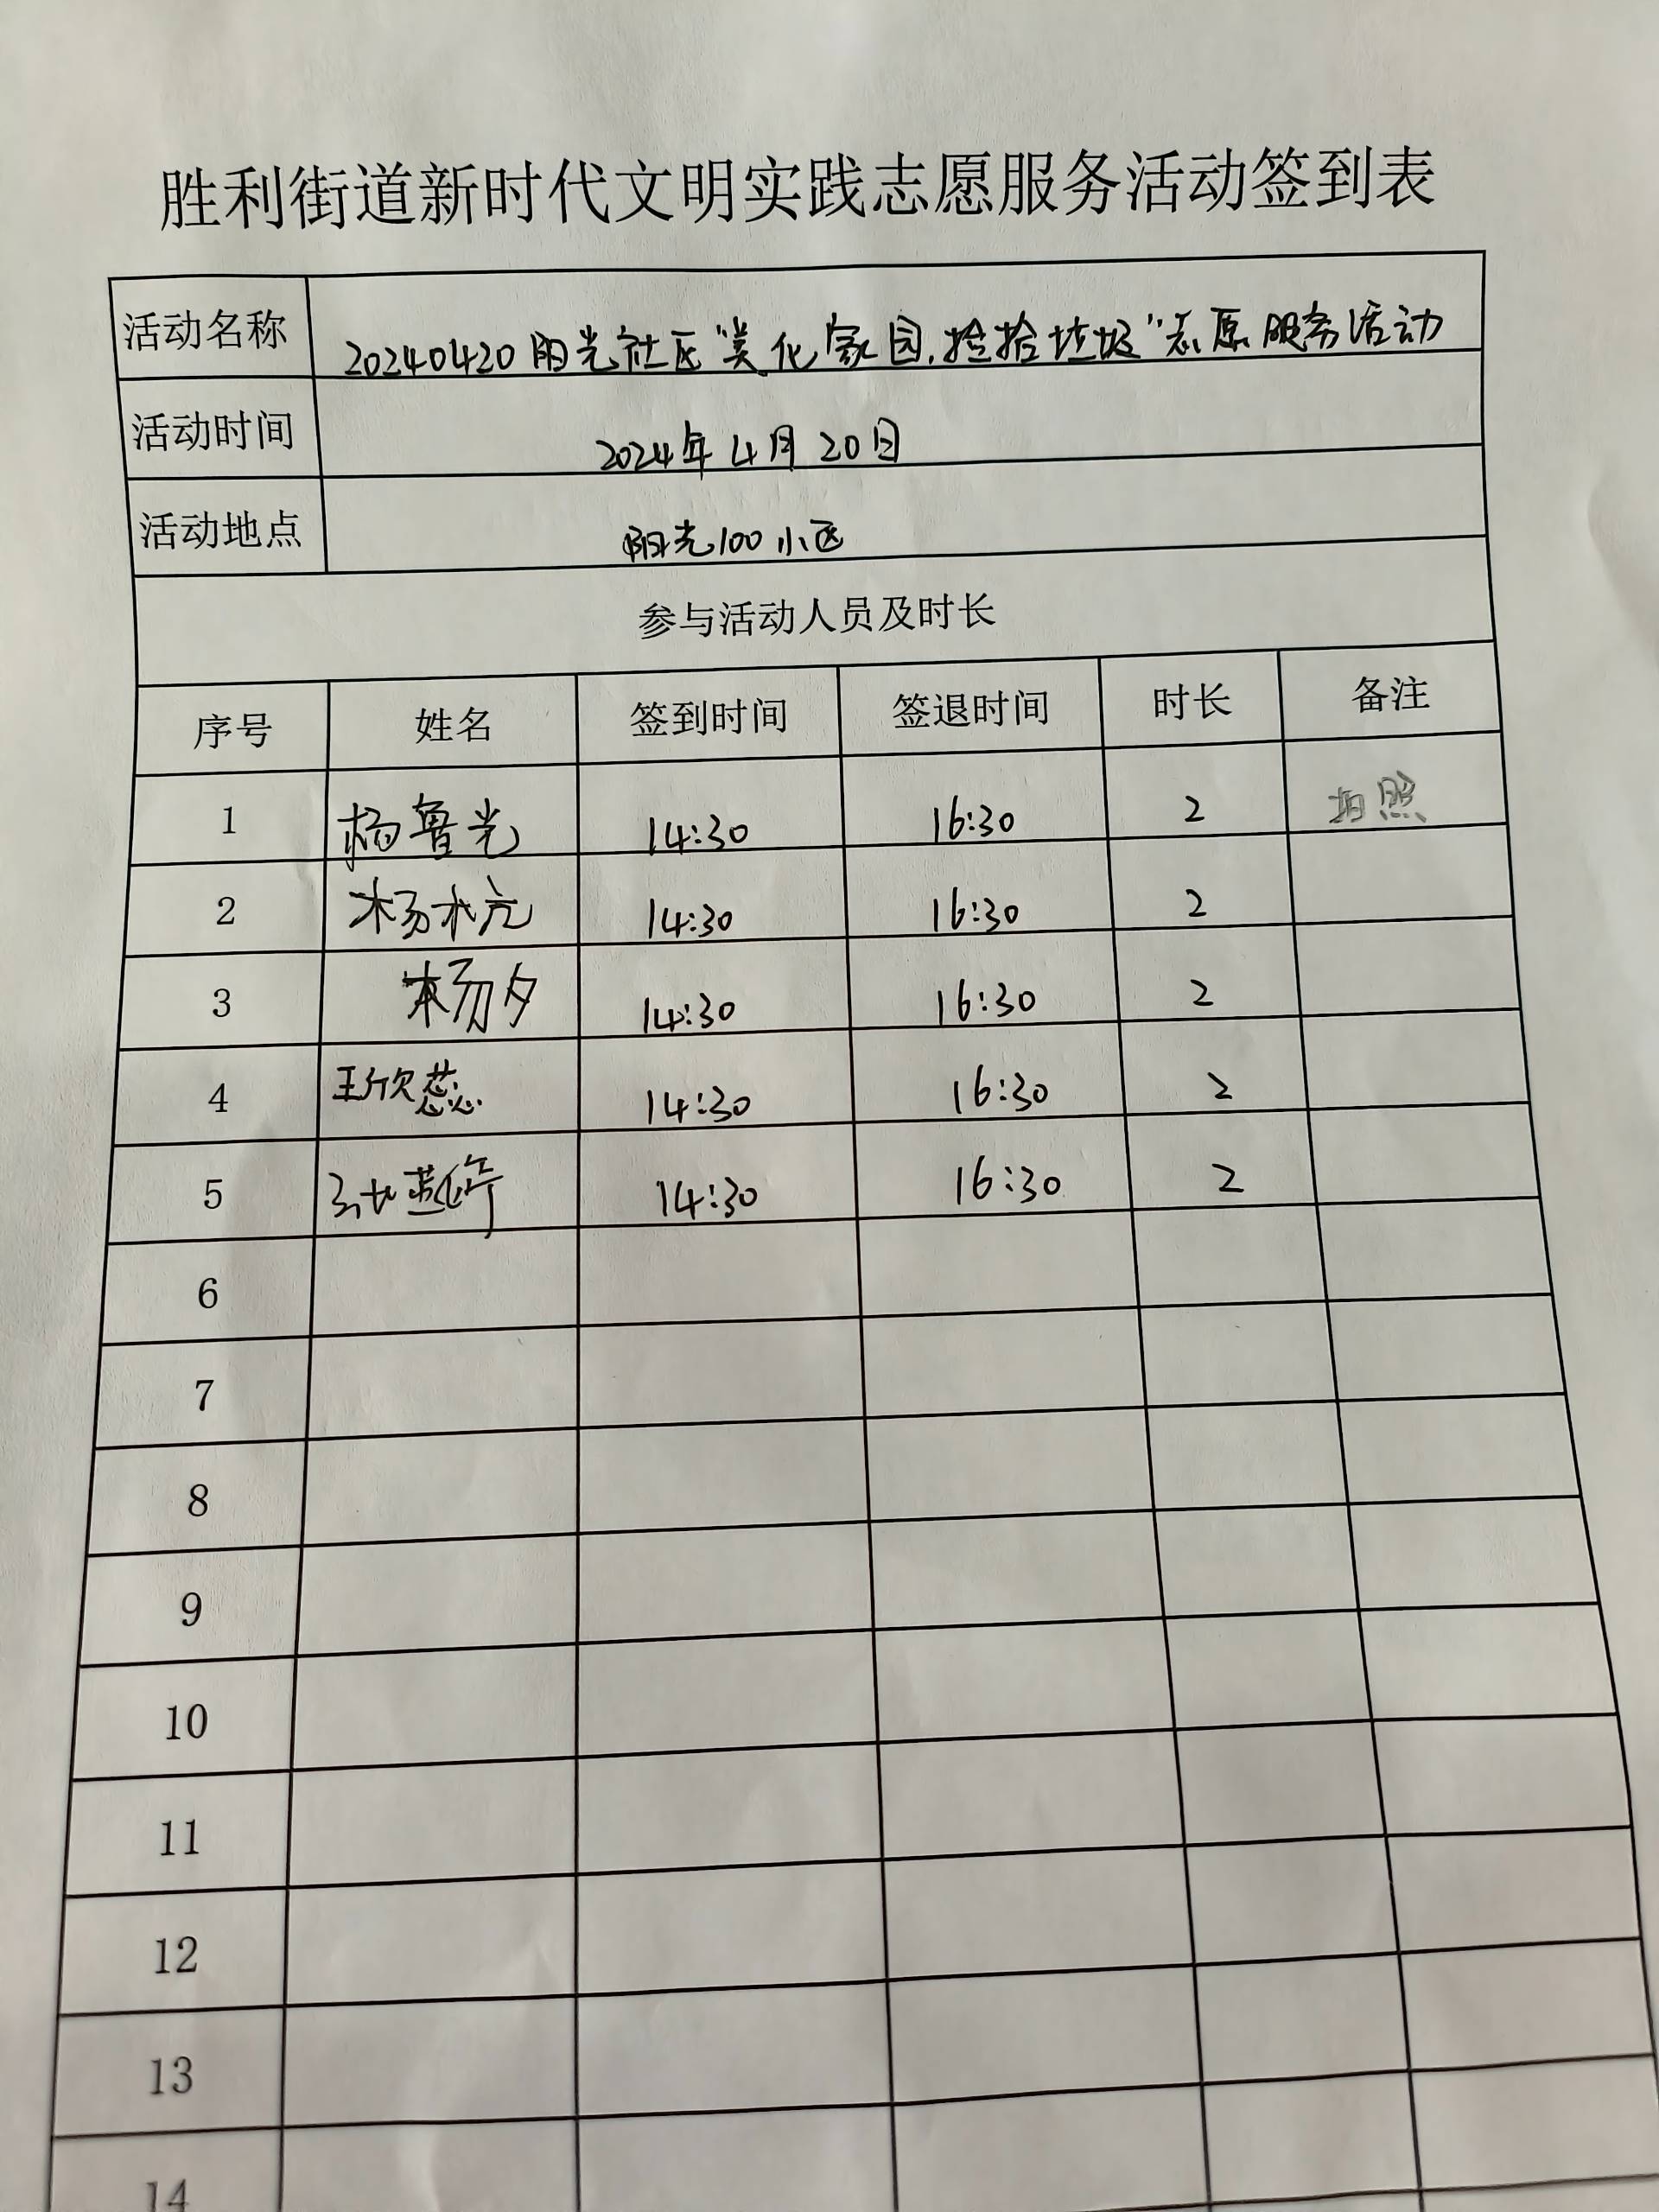 胜利街道新时代文明实践志愿服务活动签到表
活动名称 20240420阳光社区"美化家园,捡拾垃圾"志愿服务活动
活动时间 2024年4月20日
活动地点 阳光100小区
参与活动人员及时长
序号 姓名 签到时间 签退时间 时长 备注
1 杨鲁光 14:30 16:30 2 拍照
2 杨 14:30 16:30 2
3 杨夕 14:30 16:30 2
4 王欣蕊 14:30 16:30 2
5 14:30 16:30 2
6
7
8
9
10
11
12
13
14